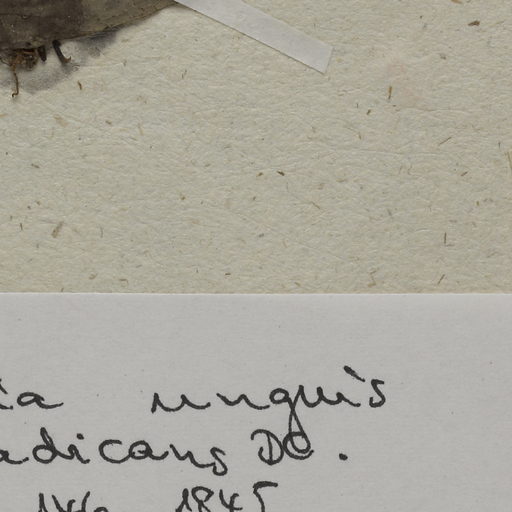 ia unguis
adicans DC.
146 1845